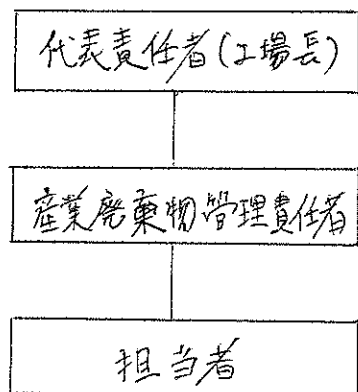 代表責任者(工場長)
産業廃棄物管理責任者
担当者